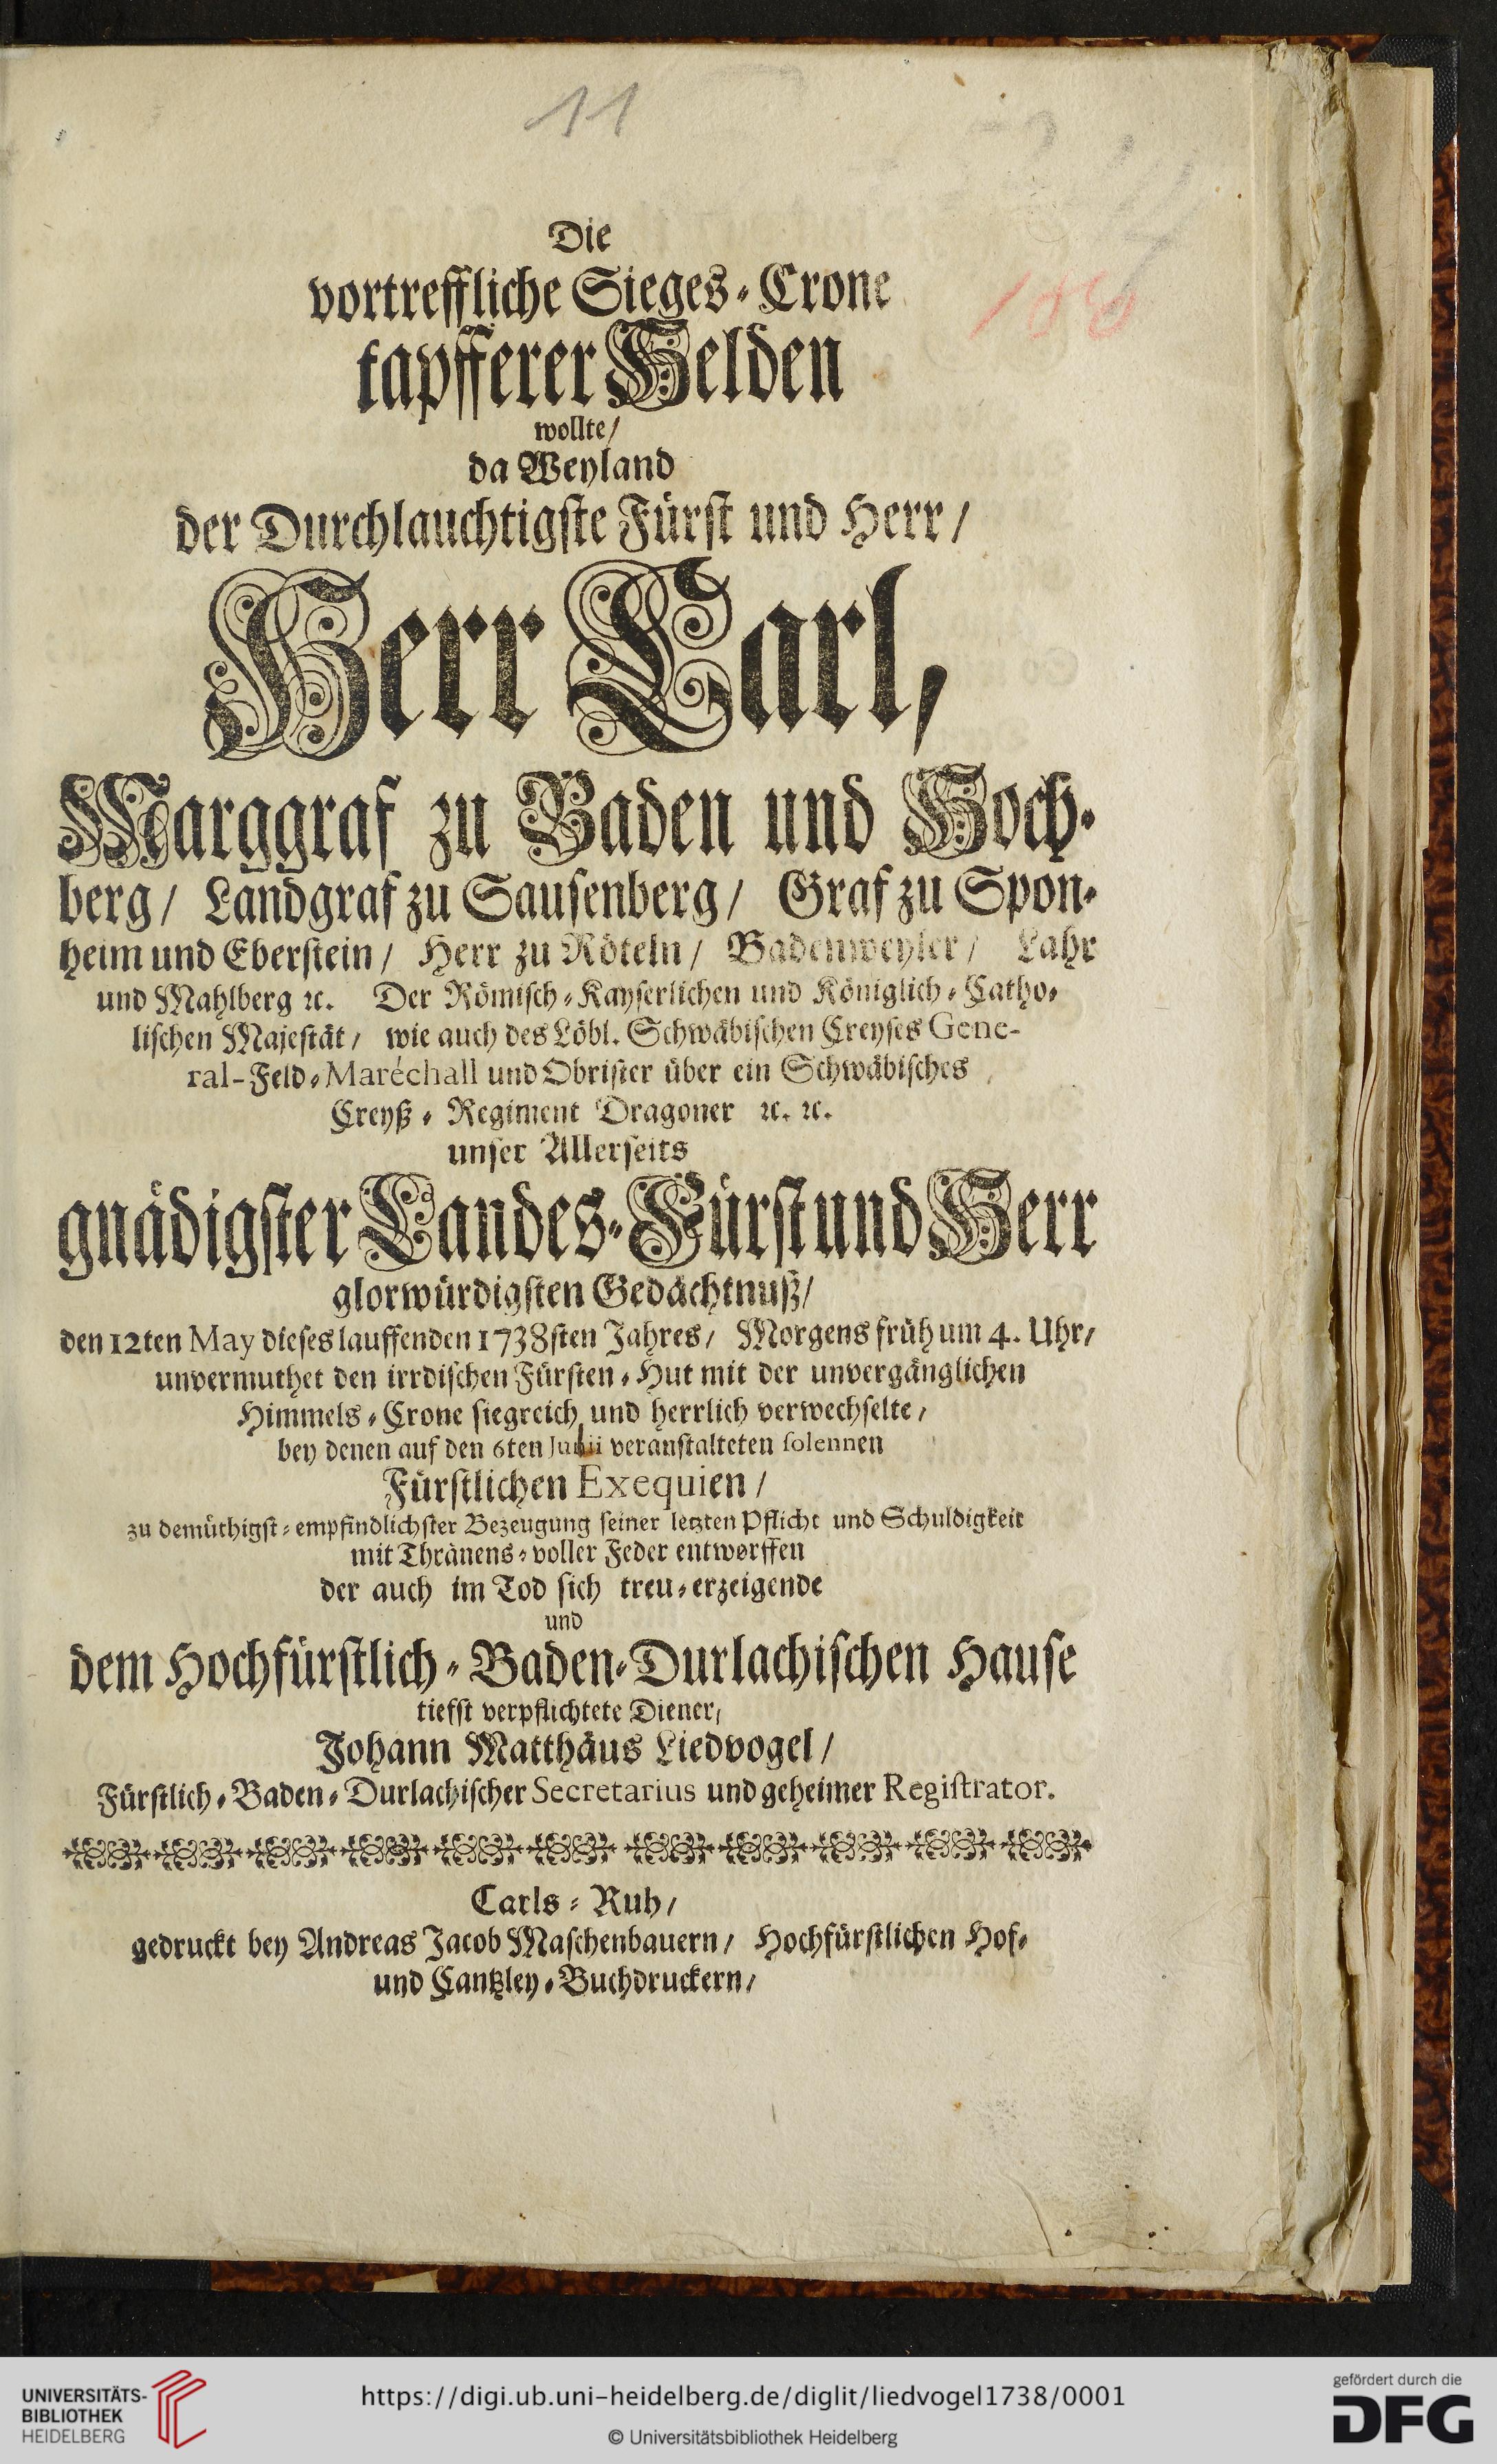 11
Die
vortreffliche Sieges-Crone
tapfferer Helden
wollte/
da Weyland
der Durchlauchtigste Fürst und Herr/
Herr Carl,
Marggraf zu Baden und Hoch-
berg/ Landgraf zu Sausenberg/ Graf zu Spon-
heim und Eberstein/ Herr zu Röteln/ Badenweyler/ Lahr
und Mahlberg ꝛc. Der Römisch-Kayserlichen und Königlich-Catho-
lischen Majestät/ wie auch des Löbl. Schwäbischen Creyses Gene-
ral-Feld-Maréchall und Obrister über ein Schwäbisches
Creyß-Regiment Dragoner ꝛc. ꝛc.
unser Allerseits
gnädigster Landes-Fürst und Herr
glorwürdigsten Gedächtnuß/
den 12ten May dieses lauffenden 1738sten Jahres/ Morgens früh um 4. Uhr/
unvermuthet den irrdischen Fürsten-Hut mit der unvergänglichen
Himmels-Crone siegreich und herrlich verwechselte/
bey denen auf den 6ten veranstalteten solennen
Fürstlichen Exequien/
zu demüthigst-empfindlichster Bezeugung seiner letzten Pflicht und Schuldigkeit
mit Thränens-voller Feder entworffen
der auch im Tod sich treu-erzeigende
und
dem Hochfürstlich-Baden-Durlachischen Hause
tiefst verpflichtete Diener/
Johann Matthäus Liedvogel/
Fürstlich-Baden-Durlachischer Secretarius und geheimer Registrator.
Carls-Ruh/
gedruckt bey Andreas Jacob Maschenbauern/ Hochfürstlichen Hof-
und Cantzley-Buchdruckern/
UNIVERSITÄTS-
BIBLIOTHEK
HEIDELBERG
https://digi.ub.uni-heidelberg.de/diglit/liedvogel1738/0001
© Universitätsbibliothek Heidelberg
gefördert durch die
DFG